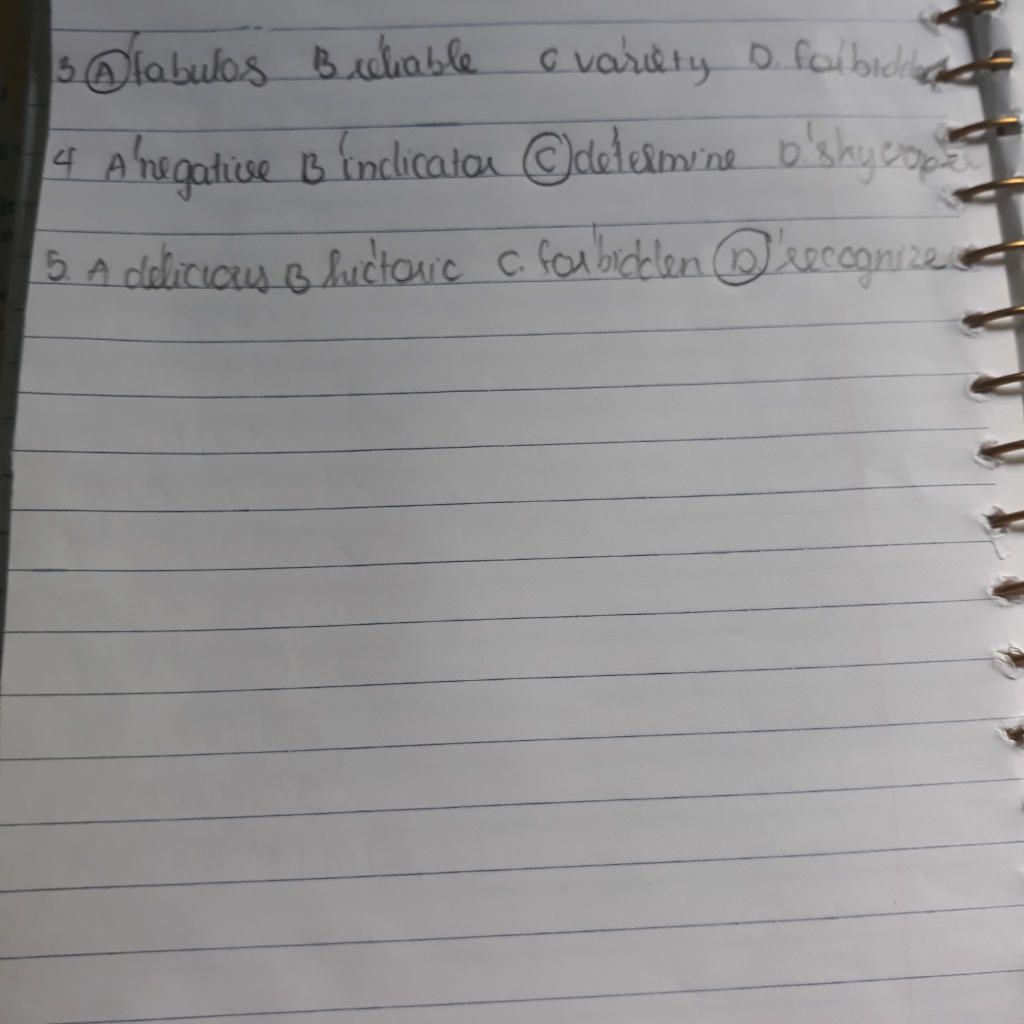 3 A 'fabulos B reliable C va'riety D. for'bidden
4 A 'negative B 'indicator C de'termine D. 'skyscraper
5. A delicious B hic'toric C. for'bidden D 'recognize